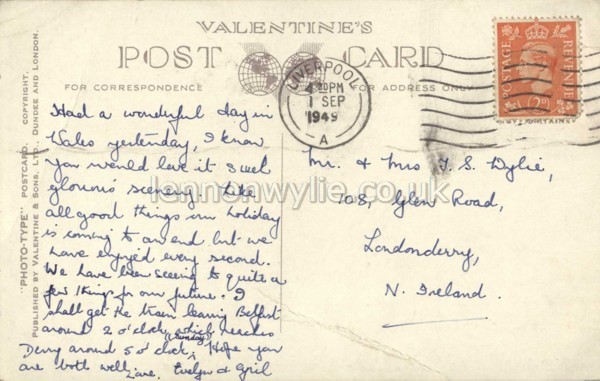 VALENTINE'S
POST CARD
FOR CORRESPONDENCE
FOR ADDRESS ONLY
"PHOTO-TYPE" POSTCARD. COPYRIGHT.
PUBLISHED BY VALENTINE & SONS, LTD., DUNDEE AND LONDON.
LIVERPOOL
PM
1 SEP
1949
A
POSTAGE
REVENUE
2D
Had a wonderful day in
Wales yesterday, I know
you would love it such
glorious scenery. Like
all good things our holiday
is coming to an end but we
have enjoyed every second.
We have been seeing to quite a
few things for our future. I
shall get the train leaving Belfast
around 2 o'clock, which reaches
(Sunday)
Derry around 5 o'clock. Hope you
are both well, Evelyn &
Mr. & Mrs T. S. Wylie,
108, Glen Road,
Londonderry,
N. Ireland.
lennonwylie.co.uk